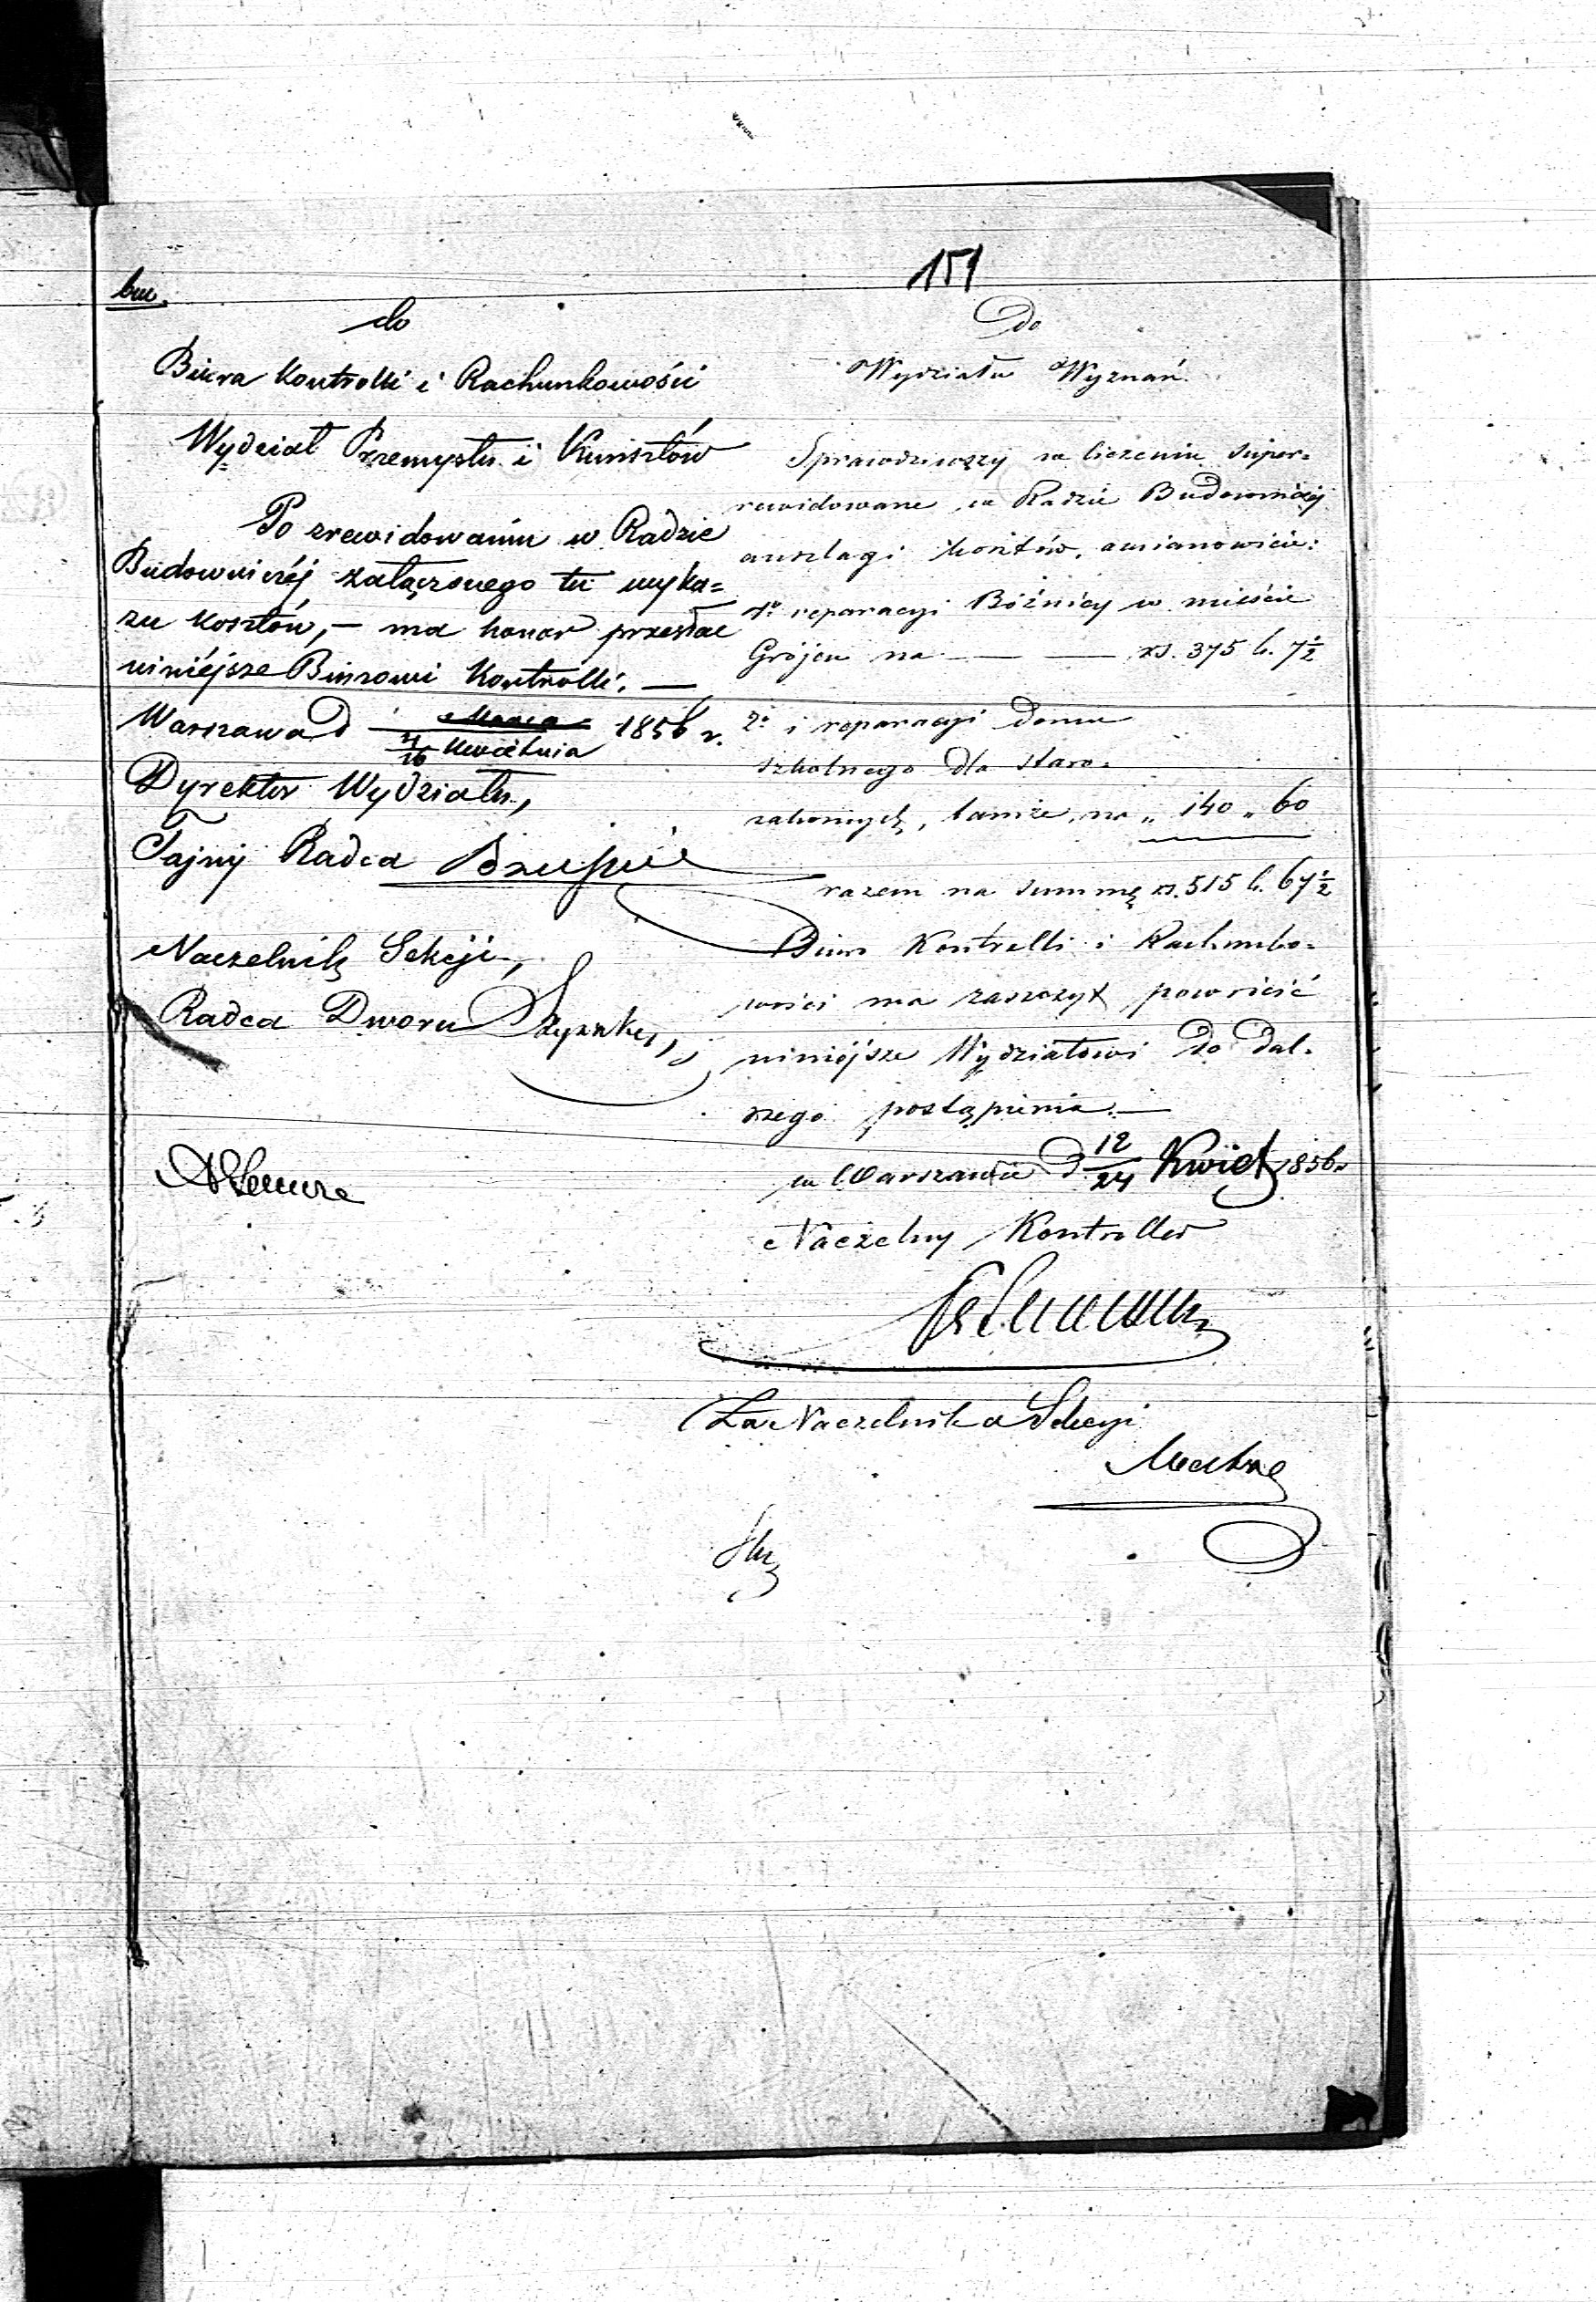 151
do
Biura Kontrolli i Rachunkowości
Wydział Przemysłu i Kunsztów
Po zrewidowaniu w Radzie
Budowniczéj załączonego tu wyka=
zu kosztów, — ma honor przesłać
niniéjsze Biurowi Kontrolli. —
Warszawa d 4/16 Marca Kwietnia 1856 r.
Dyrektor Wydziału,
Tajny Radca
Naczelnik Sekcji,
Radca Dworu
Do
Wydziału Wyznań.
Sprawdziwszy w liczeniu super=
rewidowane w Radzie Budowniczéj
anszlagi kosztów, a mianowicie:
1º reparacyi Bóźnicy w mieście
Grójcu na — — rs. 375 k. 7½
2º i reparacyi domu
szkolnego dla staro=
zakonnych, tamże, na „ 140 „ 60
razem na summę rs. 515 k. 67½
Biuro Kontrolli i Rachunko=
wości ma zaszczyt powrócić
niniéjsze Wydziałowi do dal=
szego postąpienia. —
w Warszawie d 12/24 Kwiet 1856 r
Naczelny Kontroller
Za Naczelnika Sekcyi